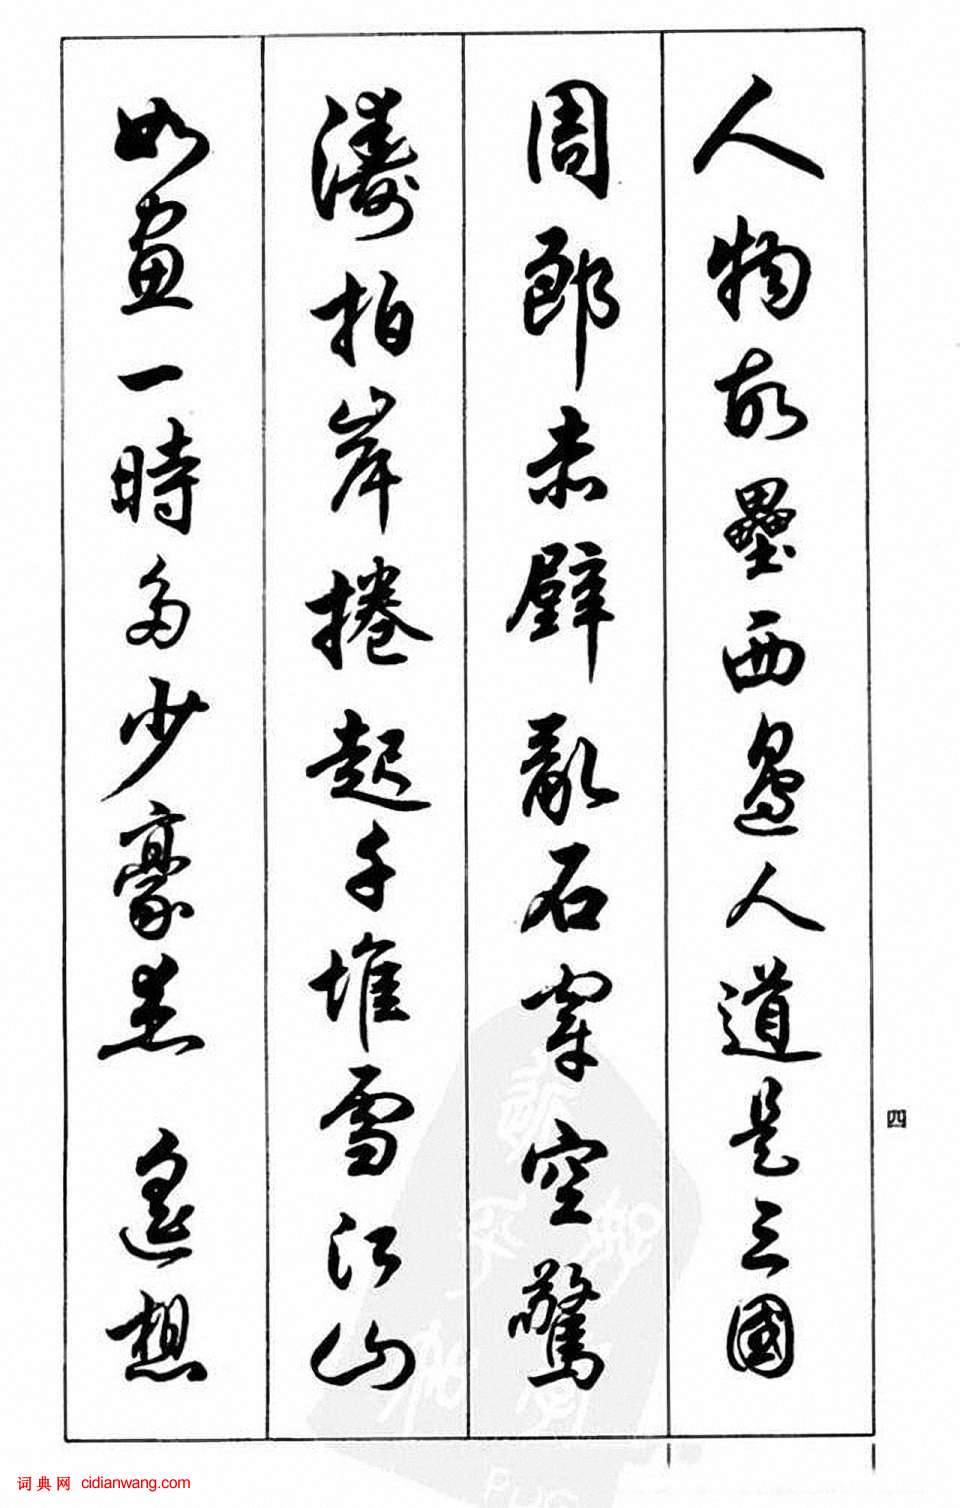 人物故壘西邊人道是三國
周郎赤壁亂石穿空驚
濤拍岸捲起千堆雪江山
如畫一時多少豪杰遙想
四
词典网 cidianwang.com